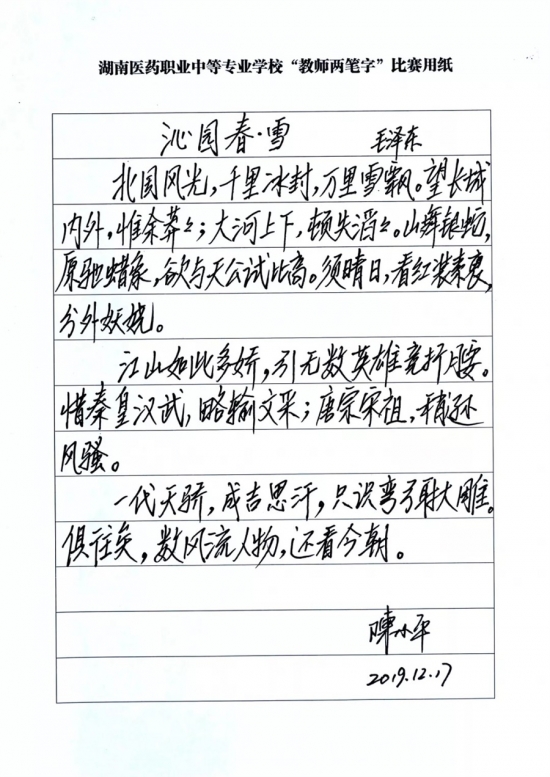 湖南医药职业中等专业学校“教师两笔字”比赛用纸
沁园春·雪 毛泽东
北国风光，千里冰封，万里雪飘。望长城
内外，惟余莽々；大河上下，顿失滔々。山舞银蛇，
原驰蜡象，欲与天公试比高。须晴日，看红装素裹，
分外妖娆。
江山如此多娇，引无数英雄竞折腰。
惜秦皇汉武，略输文采；唐宗宋祖，稍逊
风骚。
一代天骄，成吉思汗，只识弯弓射大雕。
俱往矣，数风流人物，还看今朝。
陳小平
2019.12.17